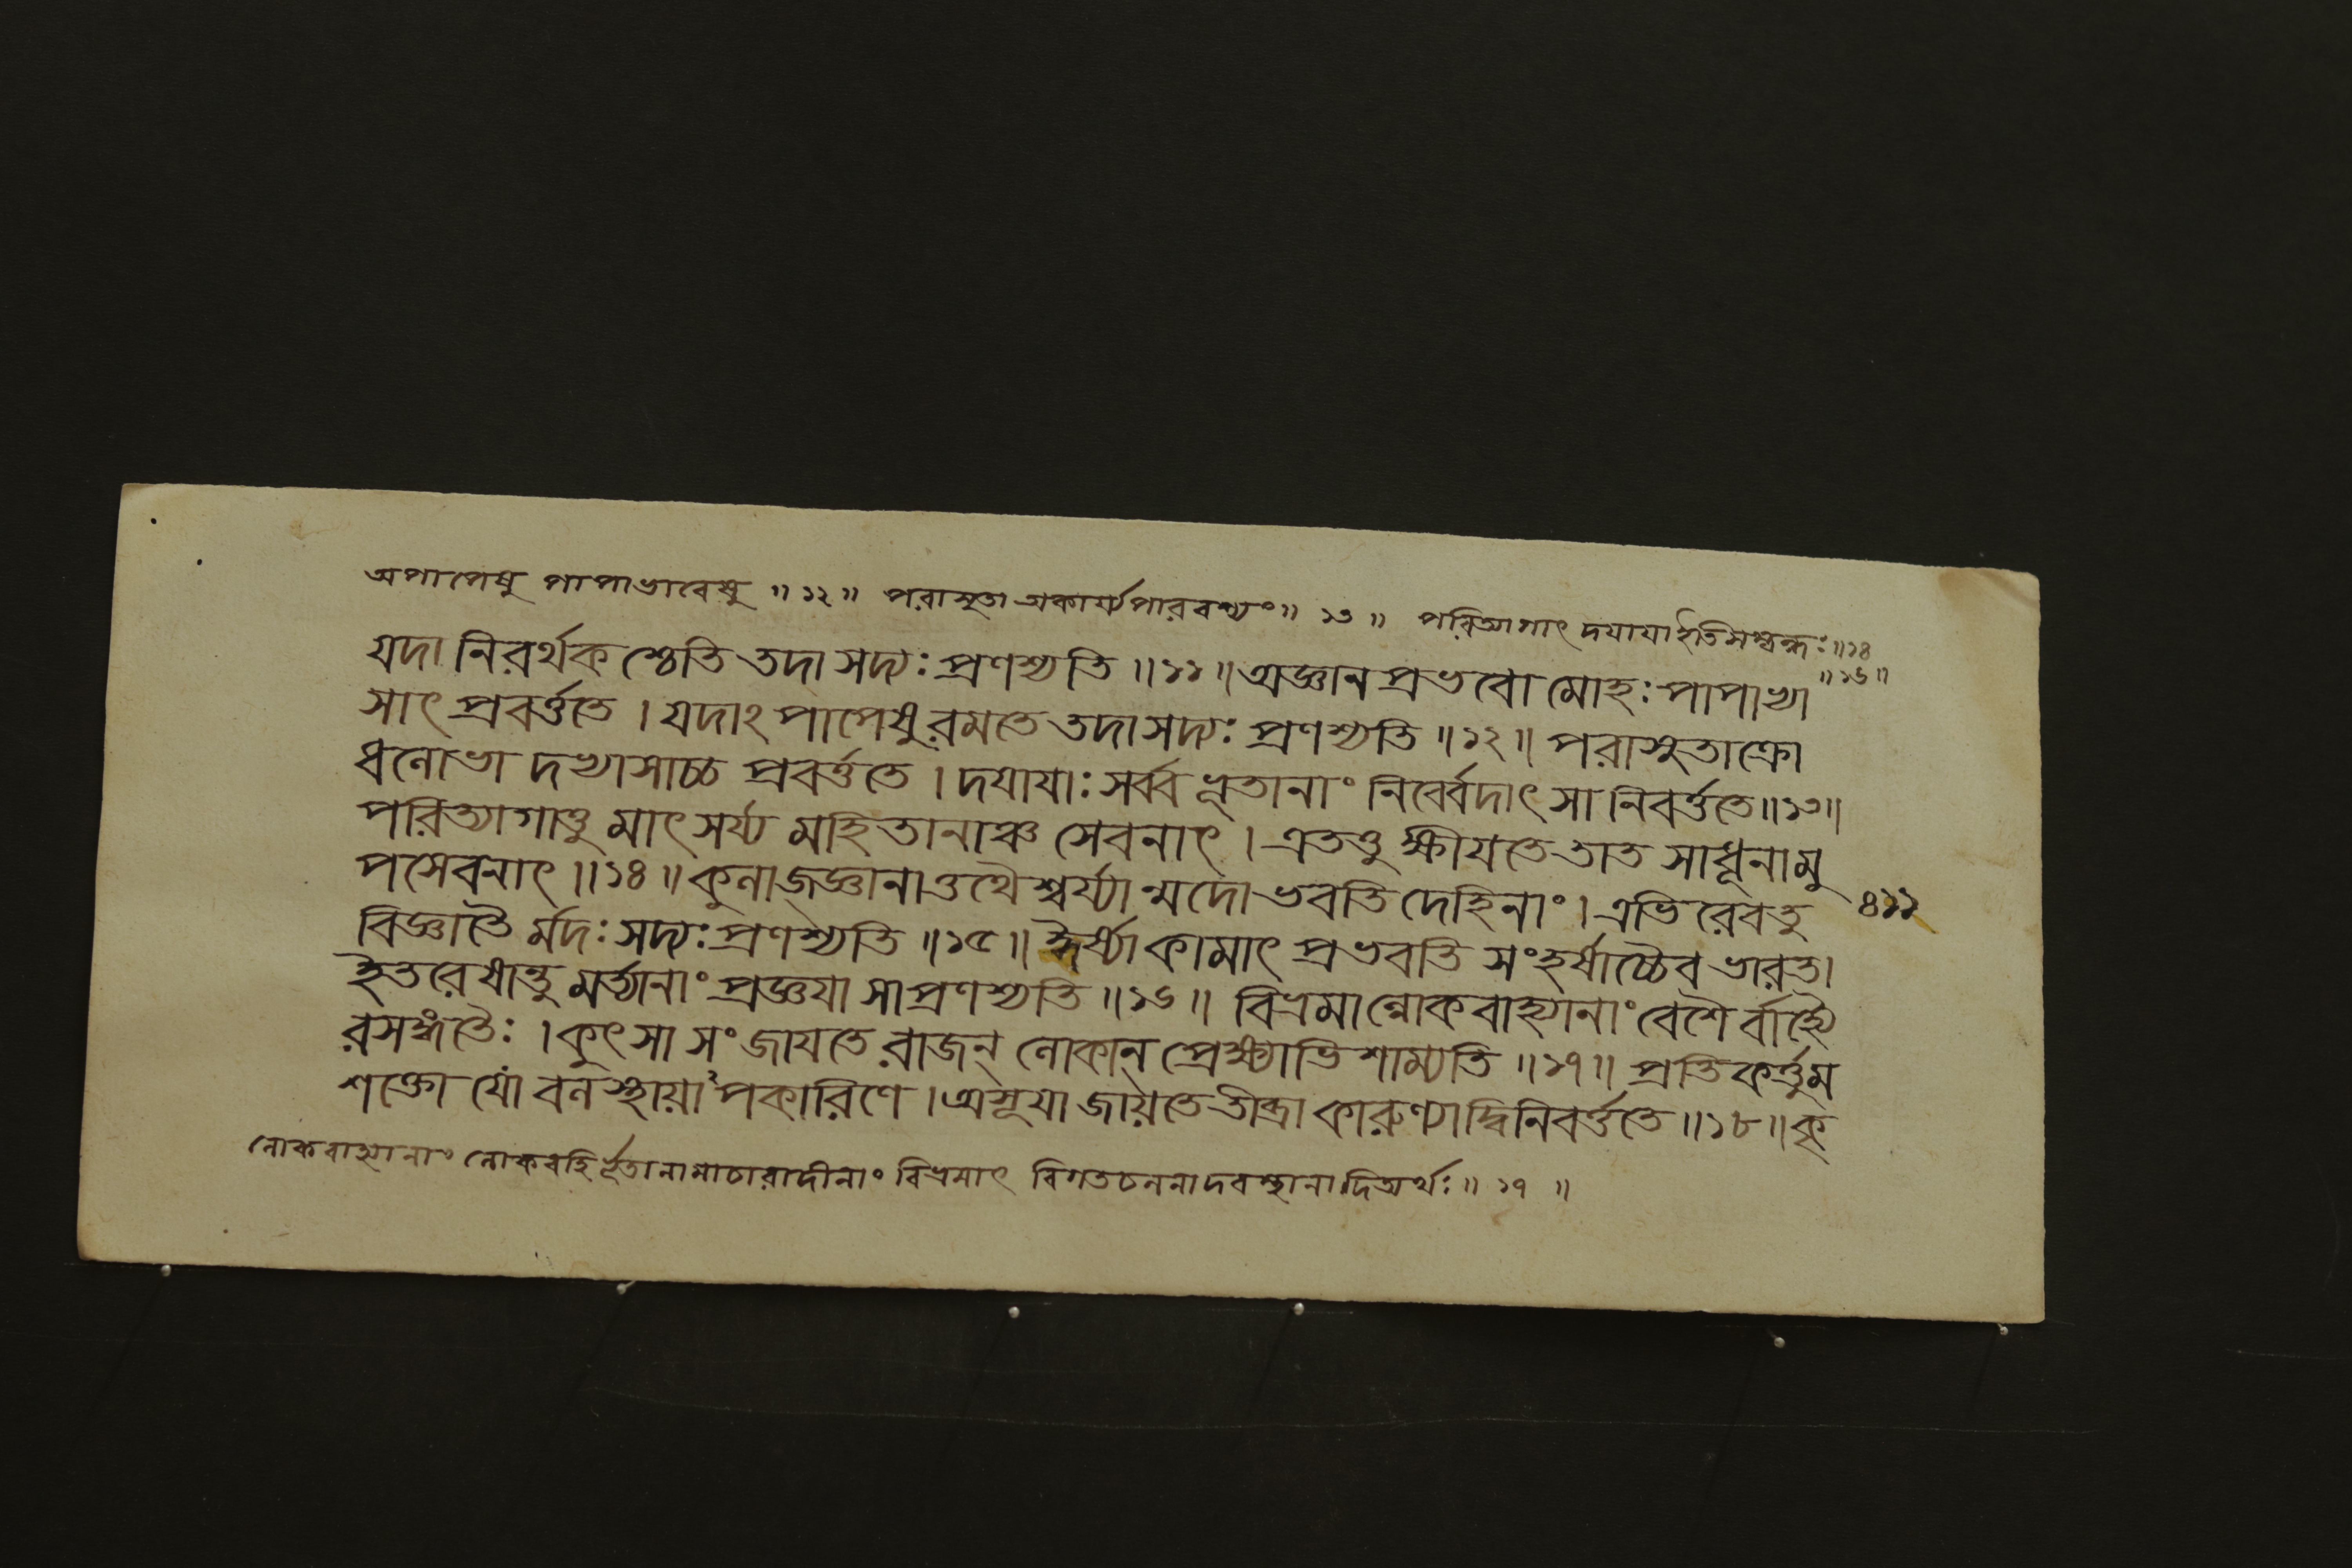 অপাপেষু পাপাভাবেষু ॥ ১২ ॥ পরাসুতা অকার্য্যপারবশ্যং ॥ ১৩ ॥ পরিত্যাগাৎ দযাযা ইতি সম্বন্ধঃ ॥ ১৪
॥ ১৬ ॥
যদা নিরর্থকশ্চেতি তদা সদ্যঃ প্রণশ্যতি ॥ ১১ ॥ অজ্ঞানপ্রভবো মোহঃ পাপাভ্যা
সাৎ প্রবর্ত্ততে । যদাঽপাপেষু রমতে তদা সদ্যঃ প্রণশ্যতি ॥ ১২ ॥ পরাসুতা ক্রো
ধলোভাদভ্যাসাচ্চ প্রবর্ত্ততে । দযাযাঃ সর্ব্বভূতানাং নির্ব্বেদাৎ সা নিবর্ত্ততে ॥ ১৩ ॥
পরিত্যাগাত্তু মাৎসর্য্যমহিতানাঞ্চ সেবনাৎ । এতত্তু ক্ষীযতে তাত সাধূনামু
পসেবনাৎ ॥ ১৪ ॥ কুলাজ্জ্ঞানাত্তথৈশ্বর্য্যান্মদো ভবতি দেহিনাং । এভিরেবতু
৪১১
বিজ্ঞাতৈর্মদঃ সদ্যঃ প্রণশ্যতি ॥ ১৫ ॥ ঈর্ষ্যা কামাৎ প্রভবতি সংহর্ষাচ্চৈব ভারত ।
ইতরেষান্তু মর্ত্যানাং প্রজ্ঞযা সা প্রণশ্যতি ॥ ১৬ ॥ বিভ্রমাল্লোকবাহ্যানাং বেশৈর্বাহ্যৈ
রসম্মতৈঃ । কুৎসা সংজাযতে রাজন্ লোকান্ প্রেক্ষ্যাভিশাম্যতি ॥ ১৭ ॥ প্রতিকর্ত্তুম
শক্তো যো বলস্থাযাপকারিণে । অসূযা জাযতে তীব্রা কারুণ্যাদ্বিনিবর্ত্ততে ॥ ১৮ ॥ কৃ
লোকবাহ্যানাং লোকবহির্ভূতানামাচারাদীনাং বিভ্রমাৎ বিগতচলনাদবস্থানাদিত্যর্থঃ ॥ ১৭ ॥